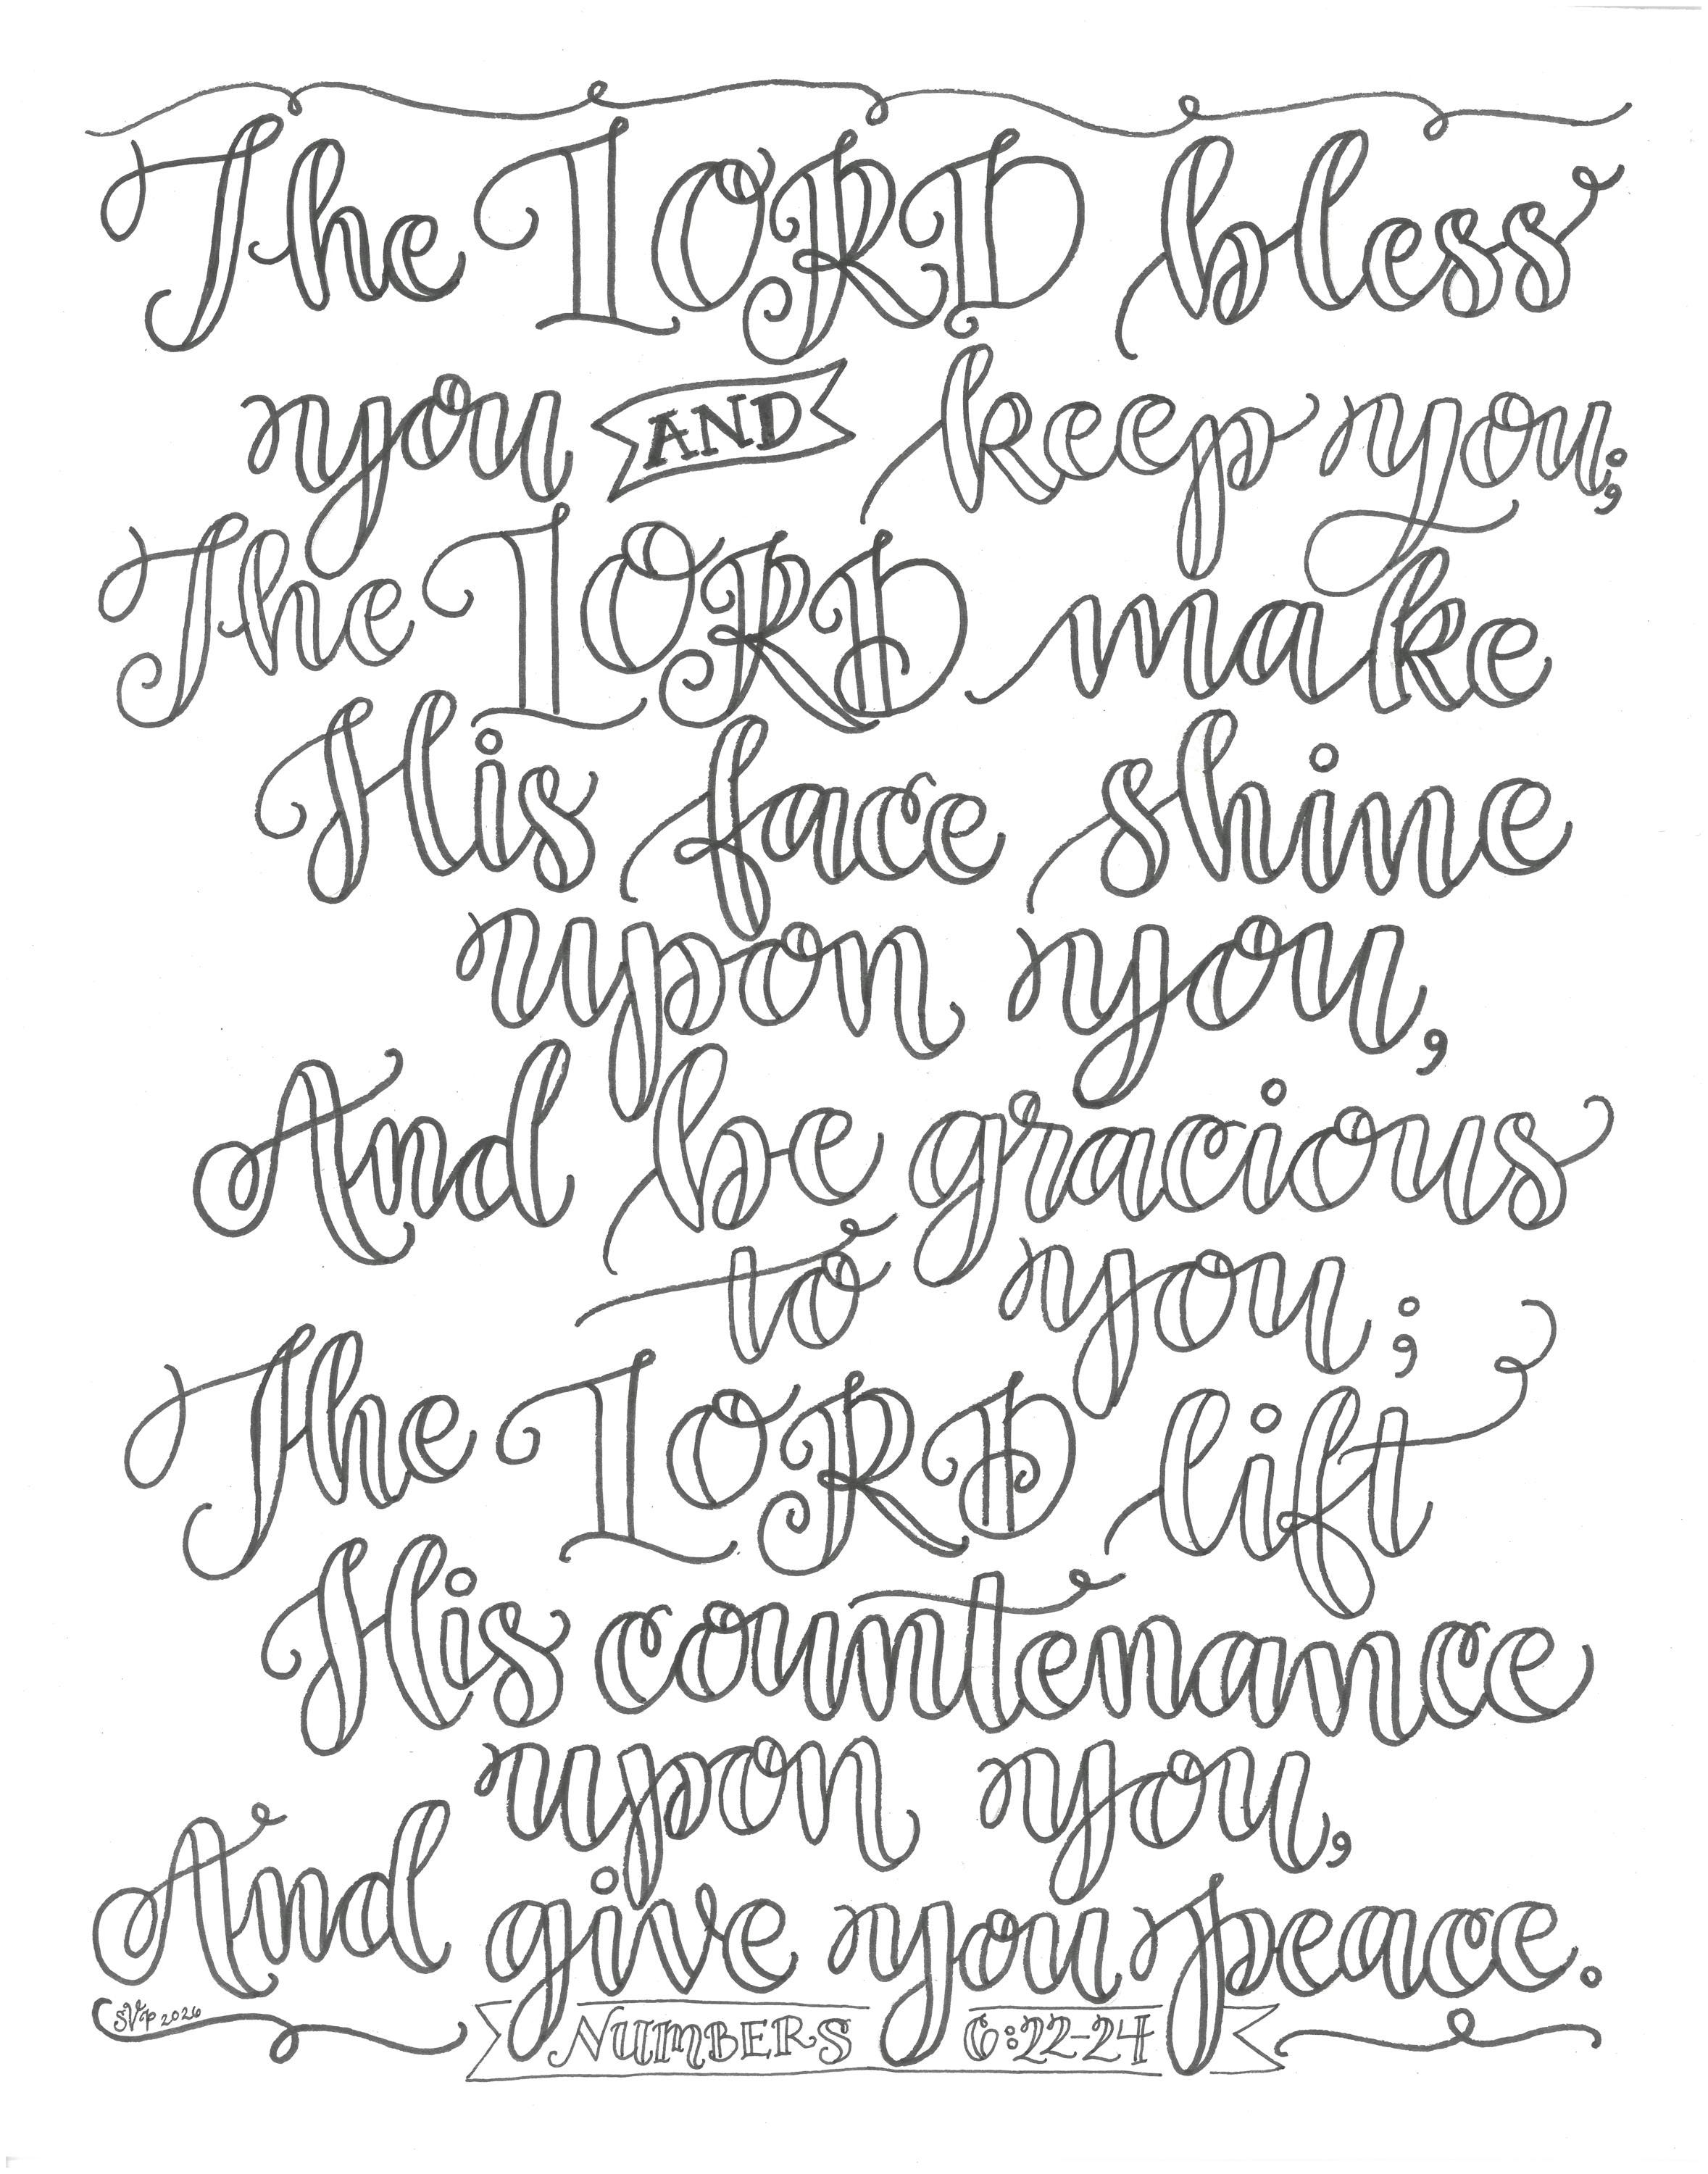 The LORD bless
you AND keep you;
The LORD make
His face shine
upon you,
And be gracious
to you;
The LORD lift
His countenance
upon you,
And give you peace.
SVP 2026
NUMBERS 6:22-24